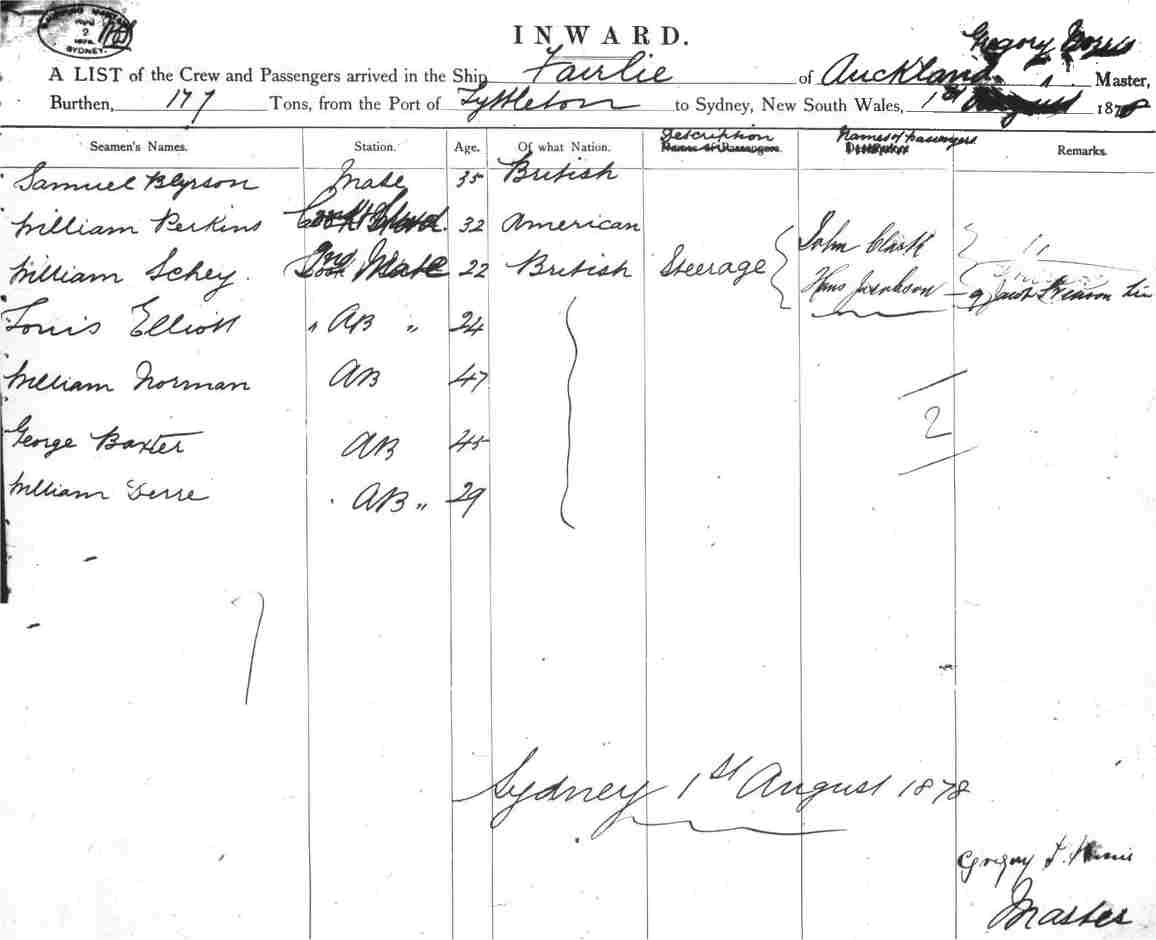 AUG
2
1878
SYDNEY.
INWARD.
Gregory
A LIST of the Crew and Passengers arrived in the Ship Fairlie of Auckland Master,
Burthen, 177 Tons, from the Port of Lyttleton to Sydney, New South Wales, 1st August 1878
Seamen's Names. Station. Age. Of what Nation. Description Names of Passengers Remarks.
Samuel Mate 35 British
William Perkins Cook 32 American John Clark
William Schey. 2nd Mate 22 British Steerage Hans Jacobson
Louis Elliott " AB " 24
William Norman AB 47
2
George Baxter AB 45
William AB " 29
7
Sydney 1st August 1878
Gregory
Master